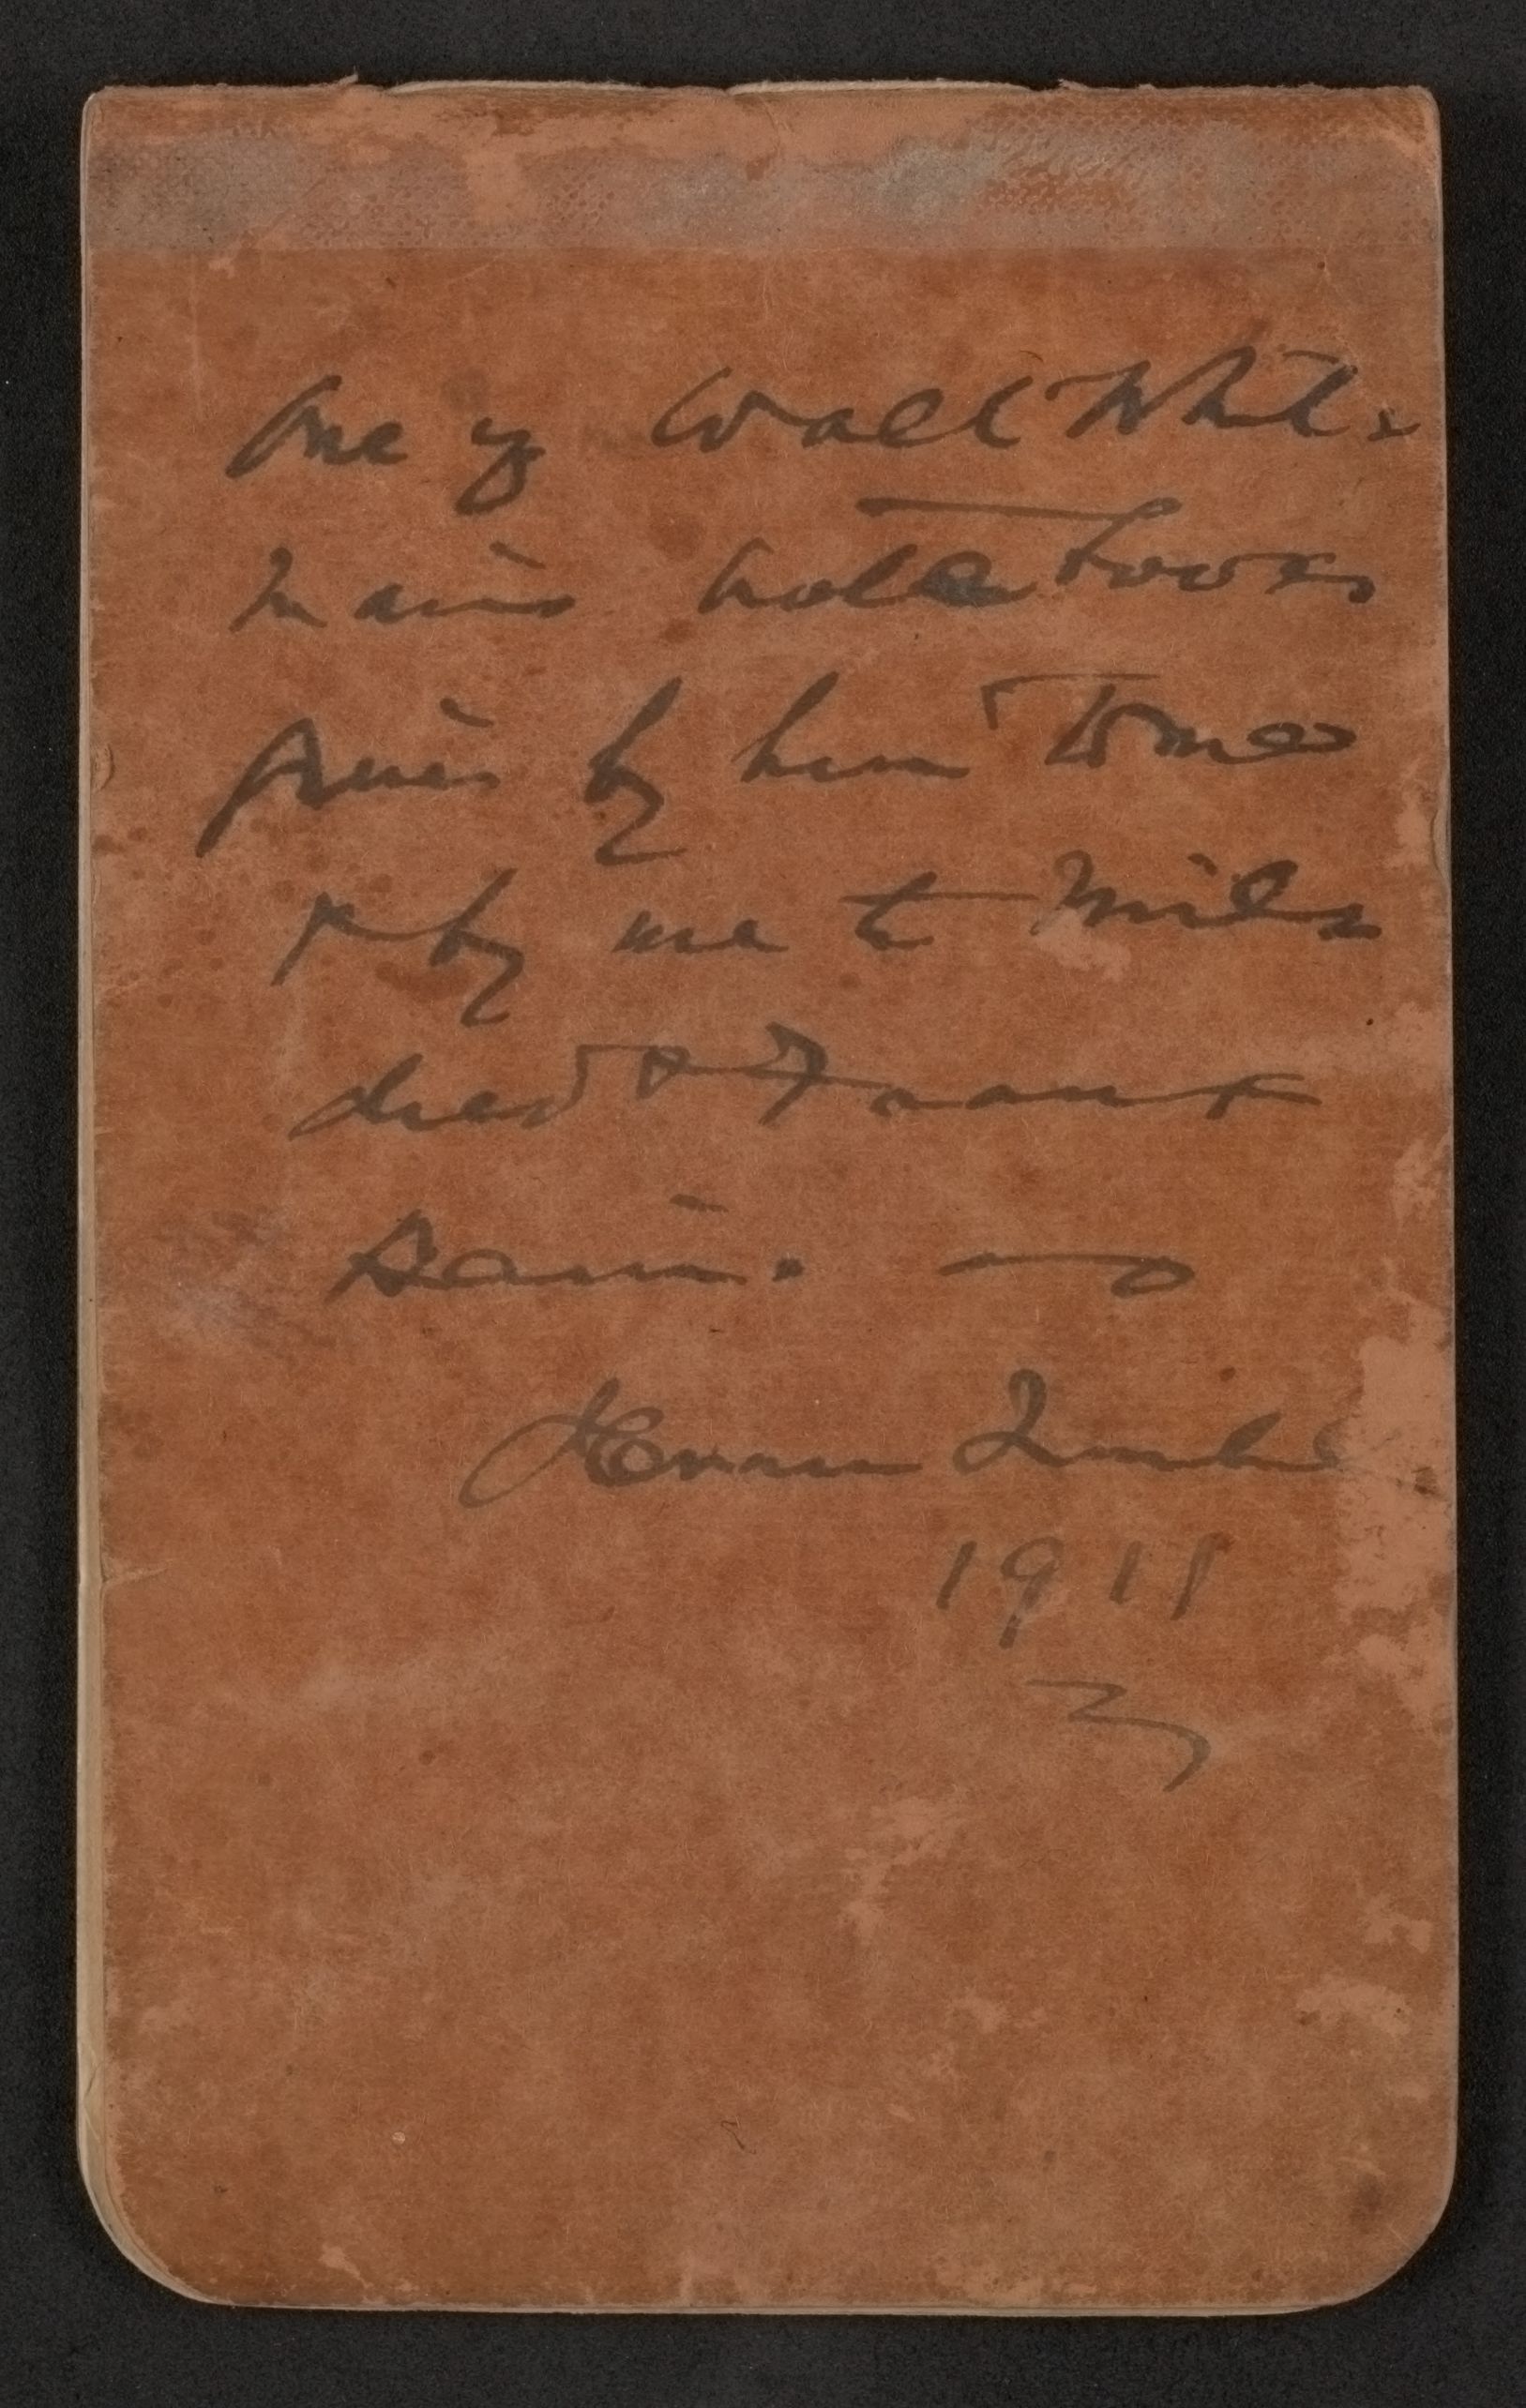 One of Walt Whit-
man's notebooks
given by him to me
& by me to Mil-
dred & Frank
Bain. —
Horace Traubel
1918